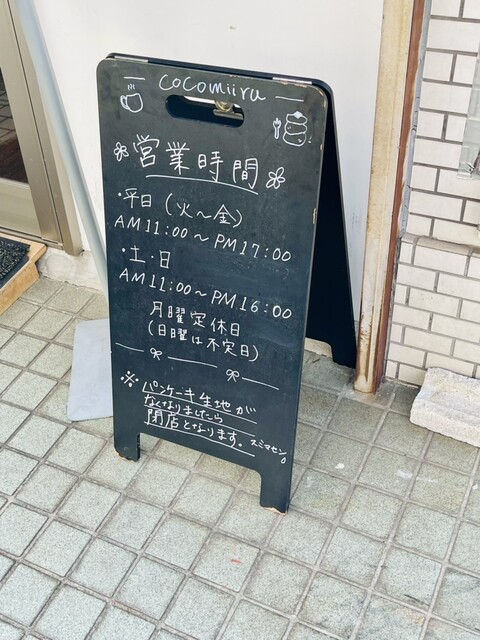 cocomiiru
営業時間
・平日(火～金)
AM11:00～PM17:00
・土・日
AM11:00～PM16:00
月曜定休日
(日曜は不定日)
※パンケーキ生地が
なくなりましたら
閉店となります。スミマセン。